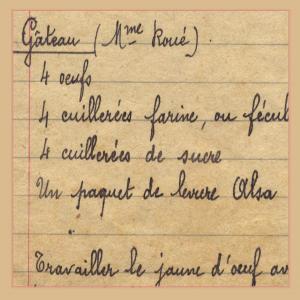 Gâteau (Mme Roué).
4 oeufs
4 cuillerées farine, ou fécul
4 cuillerées de sucre
Un paquet de levure Alsa
Travailler le jaune d'oeuf av